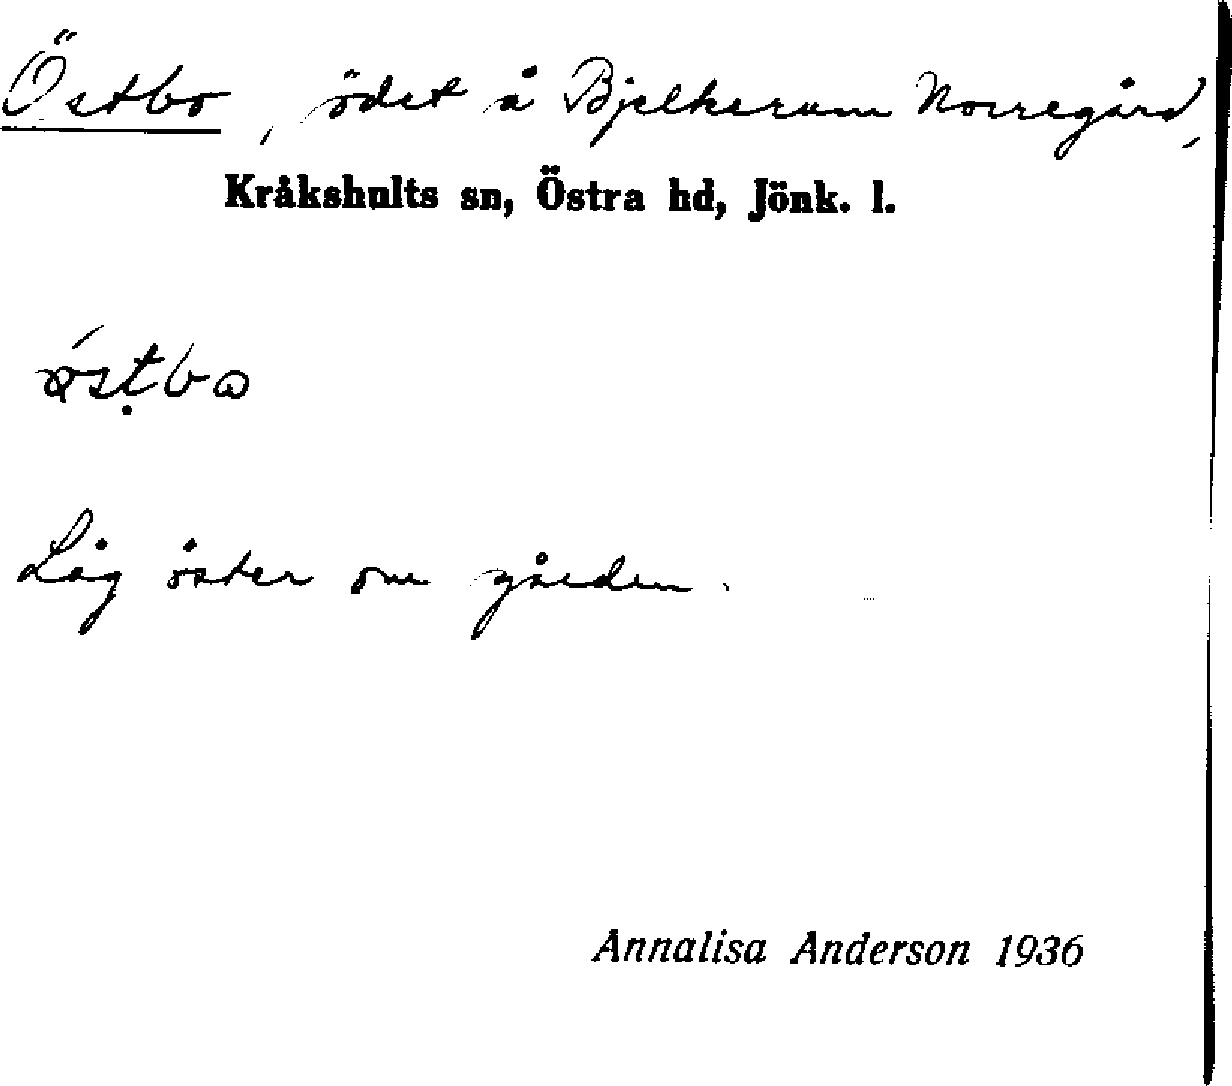 Östbo, ödet å Bjelkerum Norregård,
Kråkshults sn, Östra hd, Jönk. l.
Låg öster om gården.
Annalisa Anderson 1936